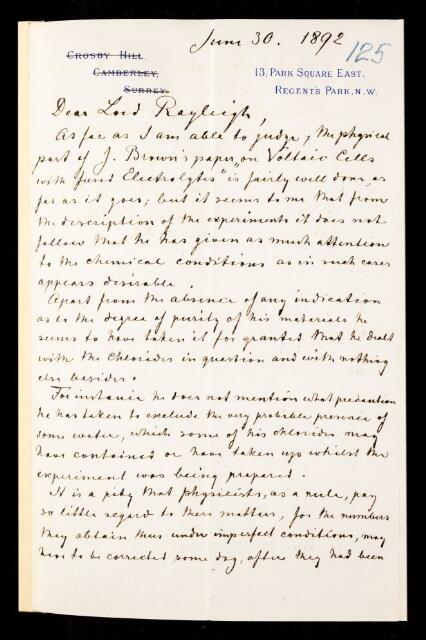 June 30. 1892
125
CROSBY HILL,
CAMBERLEY,
SURREY.
13, PARK SQUARE EAST,
REGENT'S PARK, N.W.
Dear Lord Rayleigh,
As far as I am able to judge, the physical
part of J. Brown's paper, "on Voltaic Cells
with fused Electrolytes" is fairly well done, as
far as it goes; but it seems to me that from
the description of the experiments it does not
follow that he has given as much attention
to the chemical conditions as in such cases
appears desirable.
Apart from the absence of any indication
as to the degree of purity of his materials he
seems to have taken it for granted that he dealt
with the chlorides in question and with nothing
else besides.
For instance he does not mention what precaution
he has taken to exclude the very probable presence of
some water, which some of his chlorides may
have contained or have taken up whilst the
experiment was being prepared.
It is a pity that physicists, as a rule, pay
so little regard to these matters, for the numbers
they obtain thus under imperfect conditions, may
have to be corrected some day, after they had been